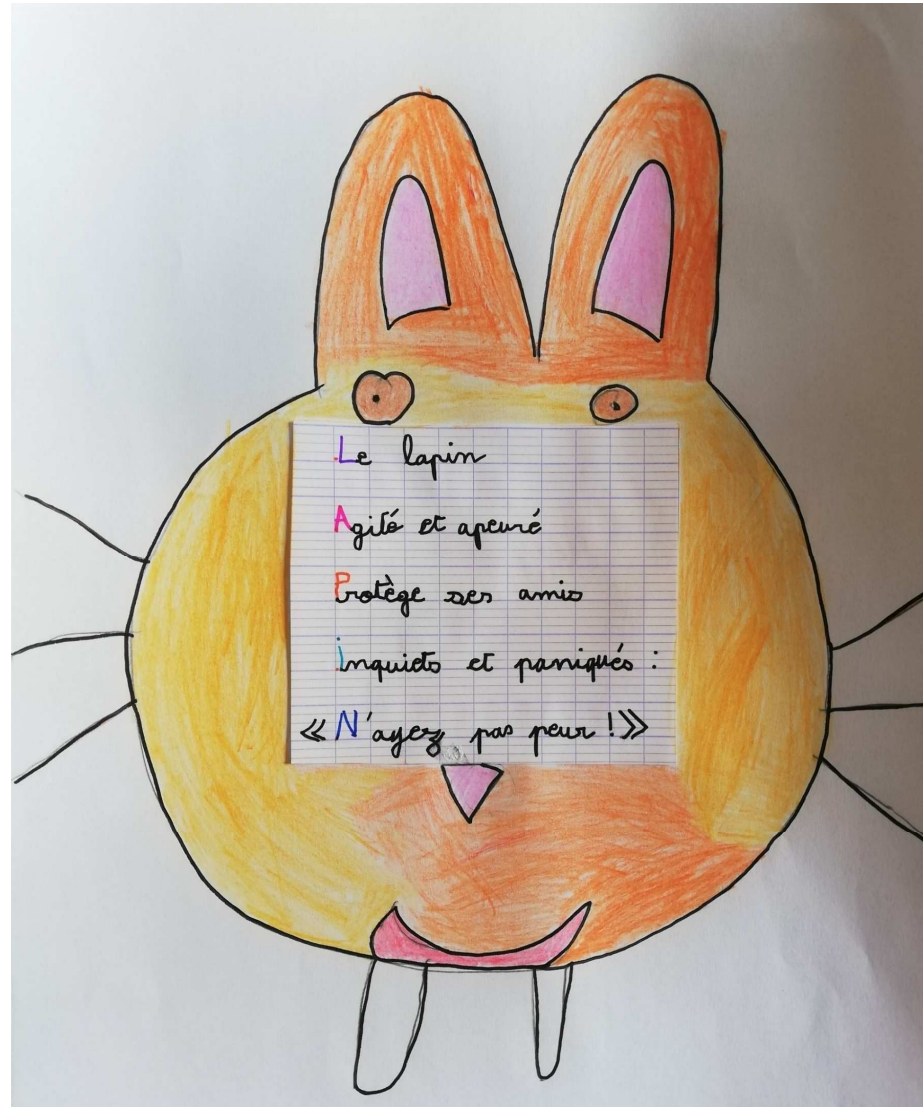 Le lapin
Agité et apeuré
Protège ses amis
inquiets et paniqués :
« N'ayez pas peur ! »